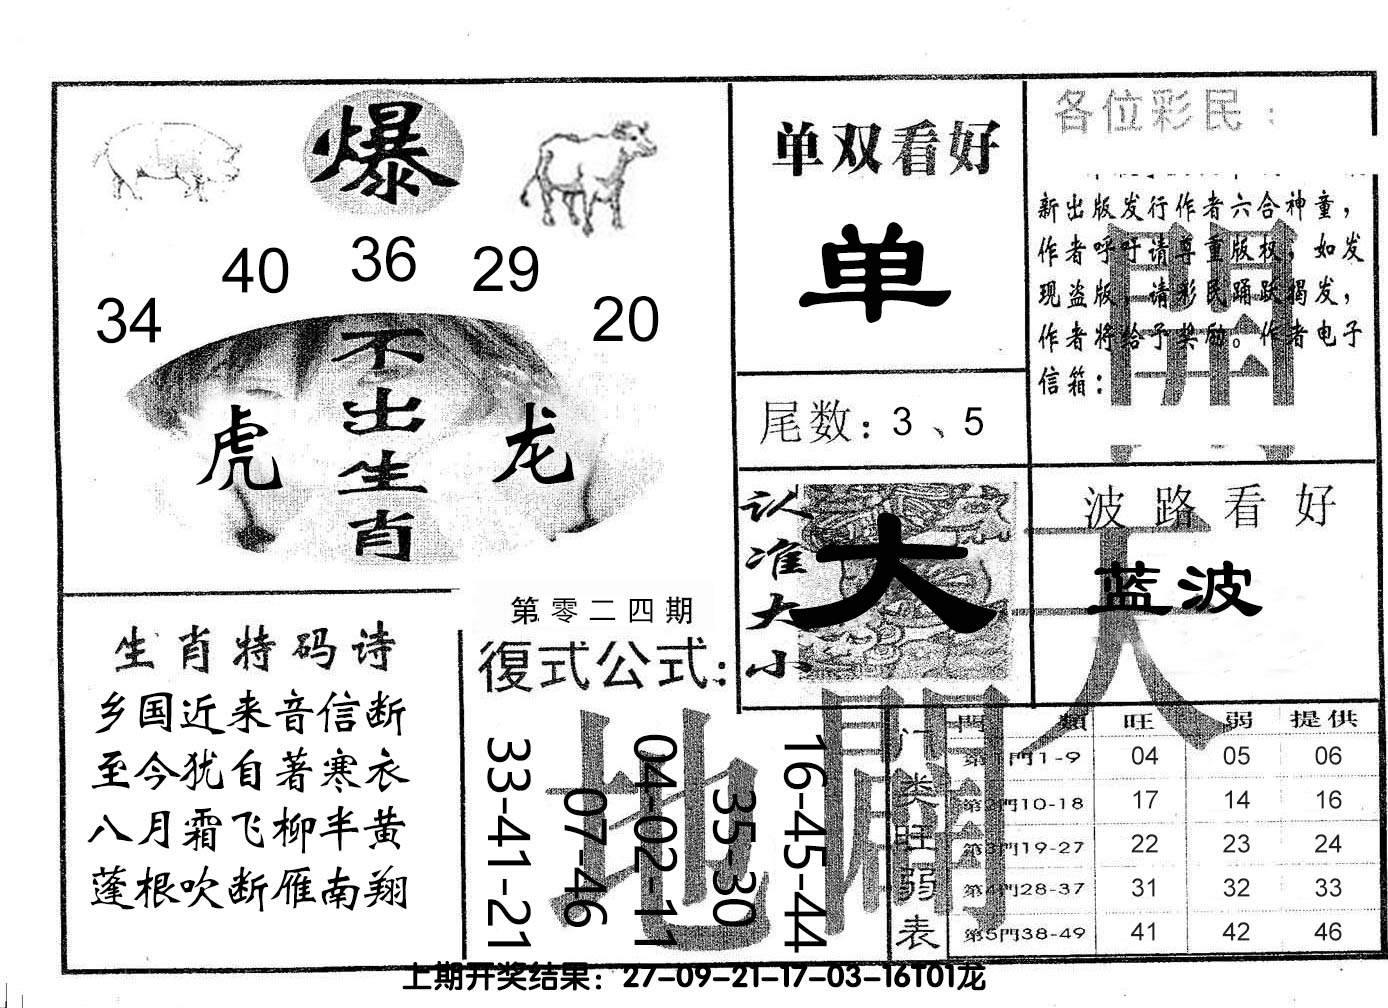 爆
34 40 36 29 20
不出生肖
虎 龙
单双看好
单
尾数：3、5
认准大小
大
各位彩民：
新出版发行作者六合神童，
作者呼吁请尊重版权，如发
现盗版，请彩民踊跃揭发，
作者将给予奖励。作者电子
信箱：
波路看好
蓝波
生肖特码诗
乡国近来音信断
至今犹自著寒衣
八月霜飞柳半黄
蓬根吹断雁南翔
第零二四期
復式公式：
33-41-21
07-46
04-02-11
35-30
16-45-44
天地開
門類 旺 弱 提供
门类旺弱表
第1門1-9 04 05 06
第2門10-18 17 14 16
第3門19-27 22 23 24
第4門28-37 31 32 33
第5門38-49 41 42 46
上期开奖结果：27-09-21-17-03-16T01龙